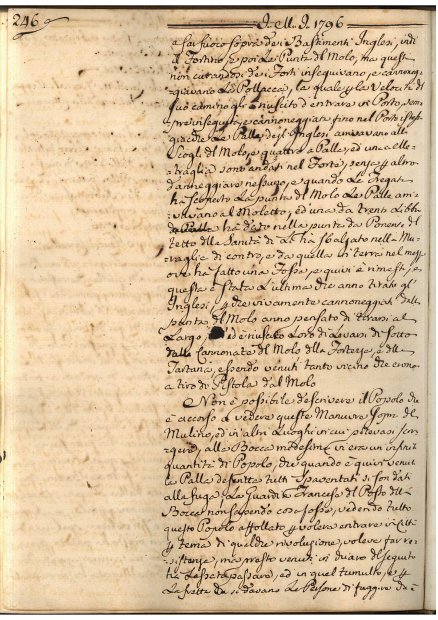 246
J. M. J. 1796
a far fuoco sopra de i Bastimenti Inglesi, indi
il Fortino, e poi Le Punta del Molo, ma questi
non curandosi de i Forti inseguivano, e cannoneg-
giavano La Pollacca, la quale p la Velocità del
suo camino gli è riuscito d'entrare in Porto, sem-
pre inseguita, e cannoneggiata fino nel Porto
giacche Le Palle degl'Inglesi arrivavano alli
Scogli del Molo, e quattro Palle, ed una
sono andati nel Forte, senza p altro
danneggiare nessuno, e quando La Fregata
ha scoperto La punta del Molo Le Palle arri-
vavano al Moletto, ed una da trenta Libbre
ha dato nella punta da Ponente del
tetto della Sanità di là ha sbalzato nella Mu-
raglia di contro, e da quella in terra nel mezzo
ove ha fatto una Fossa, e quivi è rimasta, e
questa è stata L'ultima che anno tirato gl'
Inglesi, p che vivamente cannoneggiati dalla
punta del Molo anno pensato di tirarsi al
Largo, ed è riuscito Loro di Levarsi di sotto
dalle Cannonate del Molo della Fortezza, e della
Tartana, essendo venuti tanto vicino che erano
a tiro di Pistola dal Molo
Non è possibile descrivere il Popolo che
è accorso a vedere queste Manuvre sopra del
Mulino, ed in altri Luoghi in cui potevasi scor-
gere, alle Bocca medesima vi era un infinità
quantità di Popolo, che quando è quivi venuta
La Palla descritta tutti spaventati si son dati
alla fuga, La Guardia Francese del Posto della
Bocca non sapendo cosa fosse, vedendo tutto
questo Popolo affollato p volere entrare in Città
p tema di qualche rivoluzione, voleva far re-
sistenza, ma presto venuti in chiaro del seguito
La Lasciata passare, ed in quel tumulto, e p
La fretta che si davano Le Persone di fuggire da